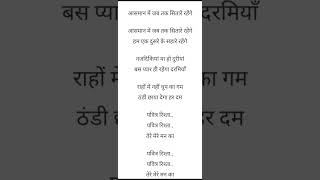 आसमान में जब तक सितारे रहेंगे
आसमान में जब तक सितारे रहेंगे
हम एक दूसरे के सहारे रहेंगे
नजदिकियां या हो दूरीयां
बस प्यार ही रहेगा दरमियाँ
राहों में नहीं धूप का गम
ठंडी छाया देगा हर दम
पवित्र रिश्ता..
पवित्र रिश्ता..
तेरे मेरे मन का
पवित्र रिश्ता..
पवित्र रिश्ता..
तेरे मेरे मन का